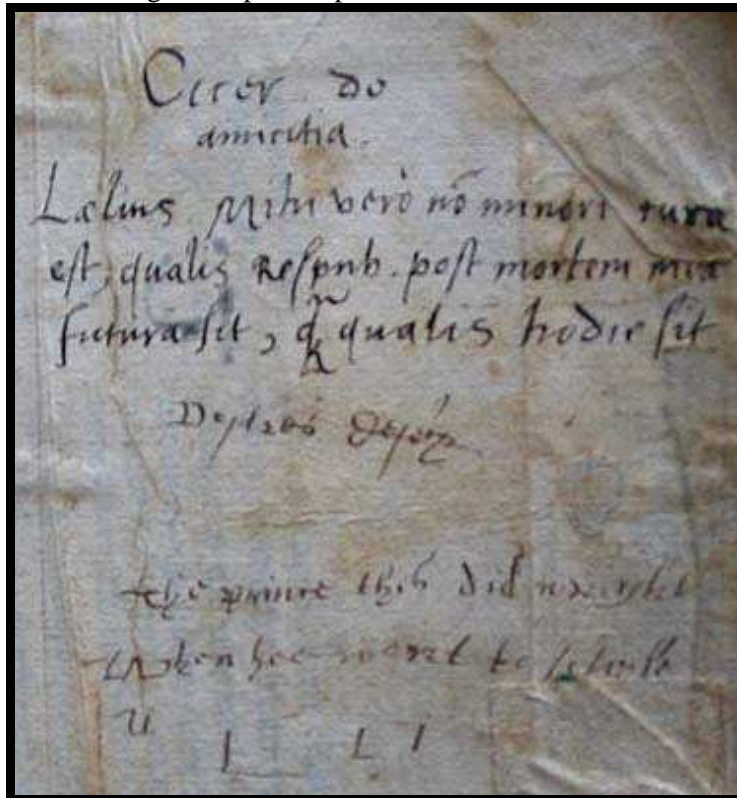 Cicer de
amicitia.
Lælius Mihi verò nō minori curæ
est, qualis Respub. post mortem meā
futura sit, q̃ qualis hodie sit
the prince this did
when hee went to